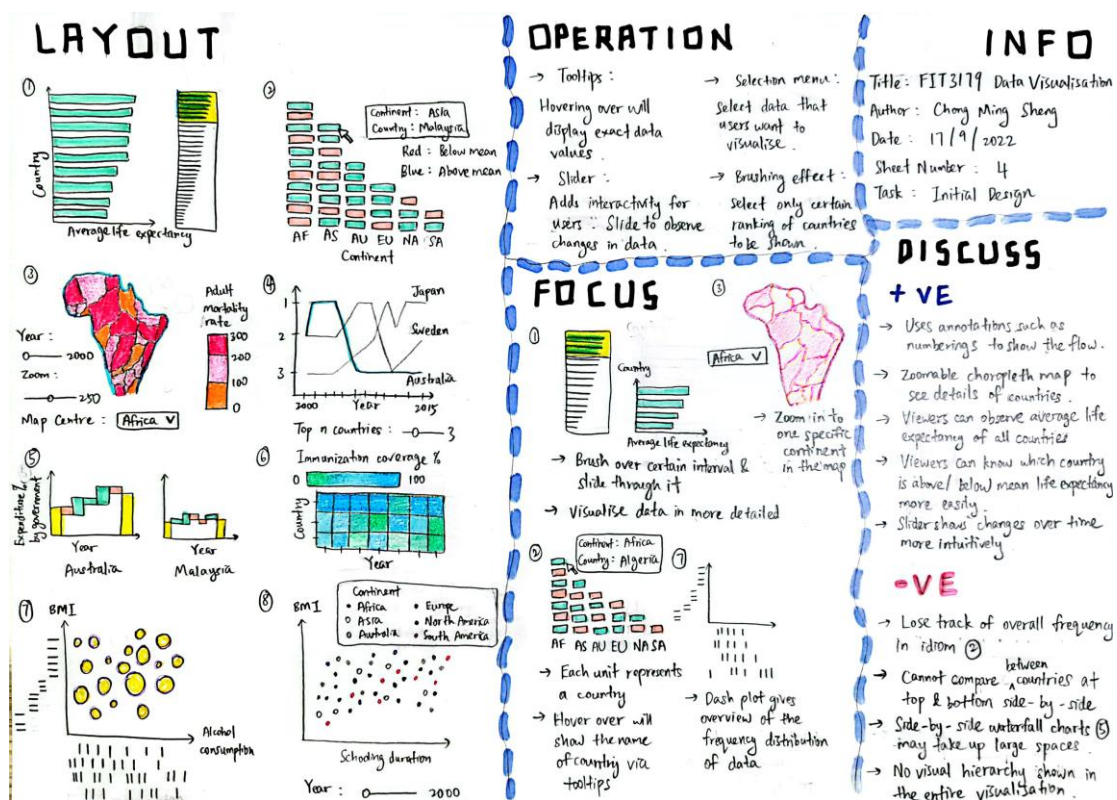 LAYOUT
①
Country
Average life expectancy
②
Continent : Asia
Country : Malaysia
Red : Below mean
Blue : Above mean
AF AS AU EU NA SA
Continent
③
Adult
mortality
rate
300
200
100
0
Year :
2000
Zoom :
250
Map Centre : Africa V
④
1
2
3
Japan
Sweden
Australia
2000 Year 2015
Top n countries : 3
⑤
Expenditure %
by government
Year
Australia
Year
Malaysia
⑥
Immunization coverage %
0 100
Country
Year
⑦ BMI
Alcohol
consumption
⑧ BMI
Continent
Africa
Asia
Australia
Europe
North America
South America
Schooling duration
Year : 2000
OPERATION
→ Tooltips :
Hovering over will
display exact data
values.
→ Slider :
Adds interactivity for
users : Slide to observe
changes in data.
→ Selection menu :
select data that
users want to
visualise.
→ Brushing effect :
select only certain
ranking of countries
to be shown.
FOCUS
①
Country
Average life expectancy
→ Brush over certain interval &
slide through it
→ Visualise data in more detailed
③
Africa V
→ Zoom in to
one specific
continent
in the map
②
Continent : Africa
Country : Algeria
AF AS AU EU NA SA
→ Each unit represents
a country
→ Hover over will
show the name
of country via
tooltips
⑦
→ Dash plot gives
overview of the
frequency distribution
of data
INFO
Title : FIT3179 Data Visualisation
Author : Chong Ming Sheng
Date : 17/9/2022
Sheet Number : 4
Task : Initial Design
DISCUSS
+VE
→ Uses annotations such as
numberings to show the flow.
→ Zoomable choropleth map to
see details of countries.
→ Viewers can observe average life
expectancy of all countries
→ Viewers can know which country
is above/below mean life expectancy
more easily.
→ Slider shows changes over time
more intuitively
-VE
→ Lose track of overall frequency
in idiom ②
→ Cannot compare between countries at
top & bottom side-by-side
→ Side-by-side waterfall charts ⑤
may take up large spaces.
→ No visual hierarchy shown in
the entire visualisation.